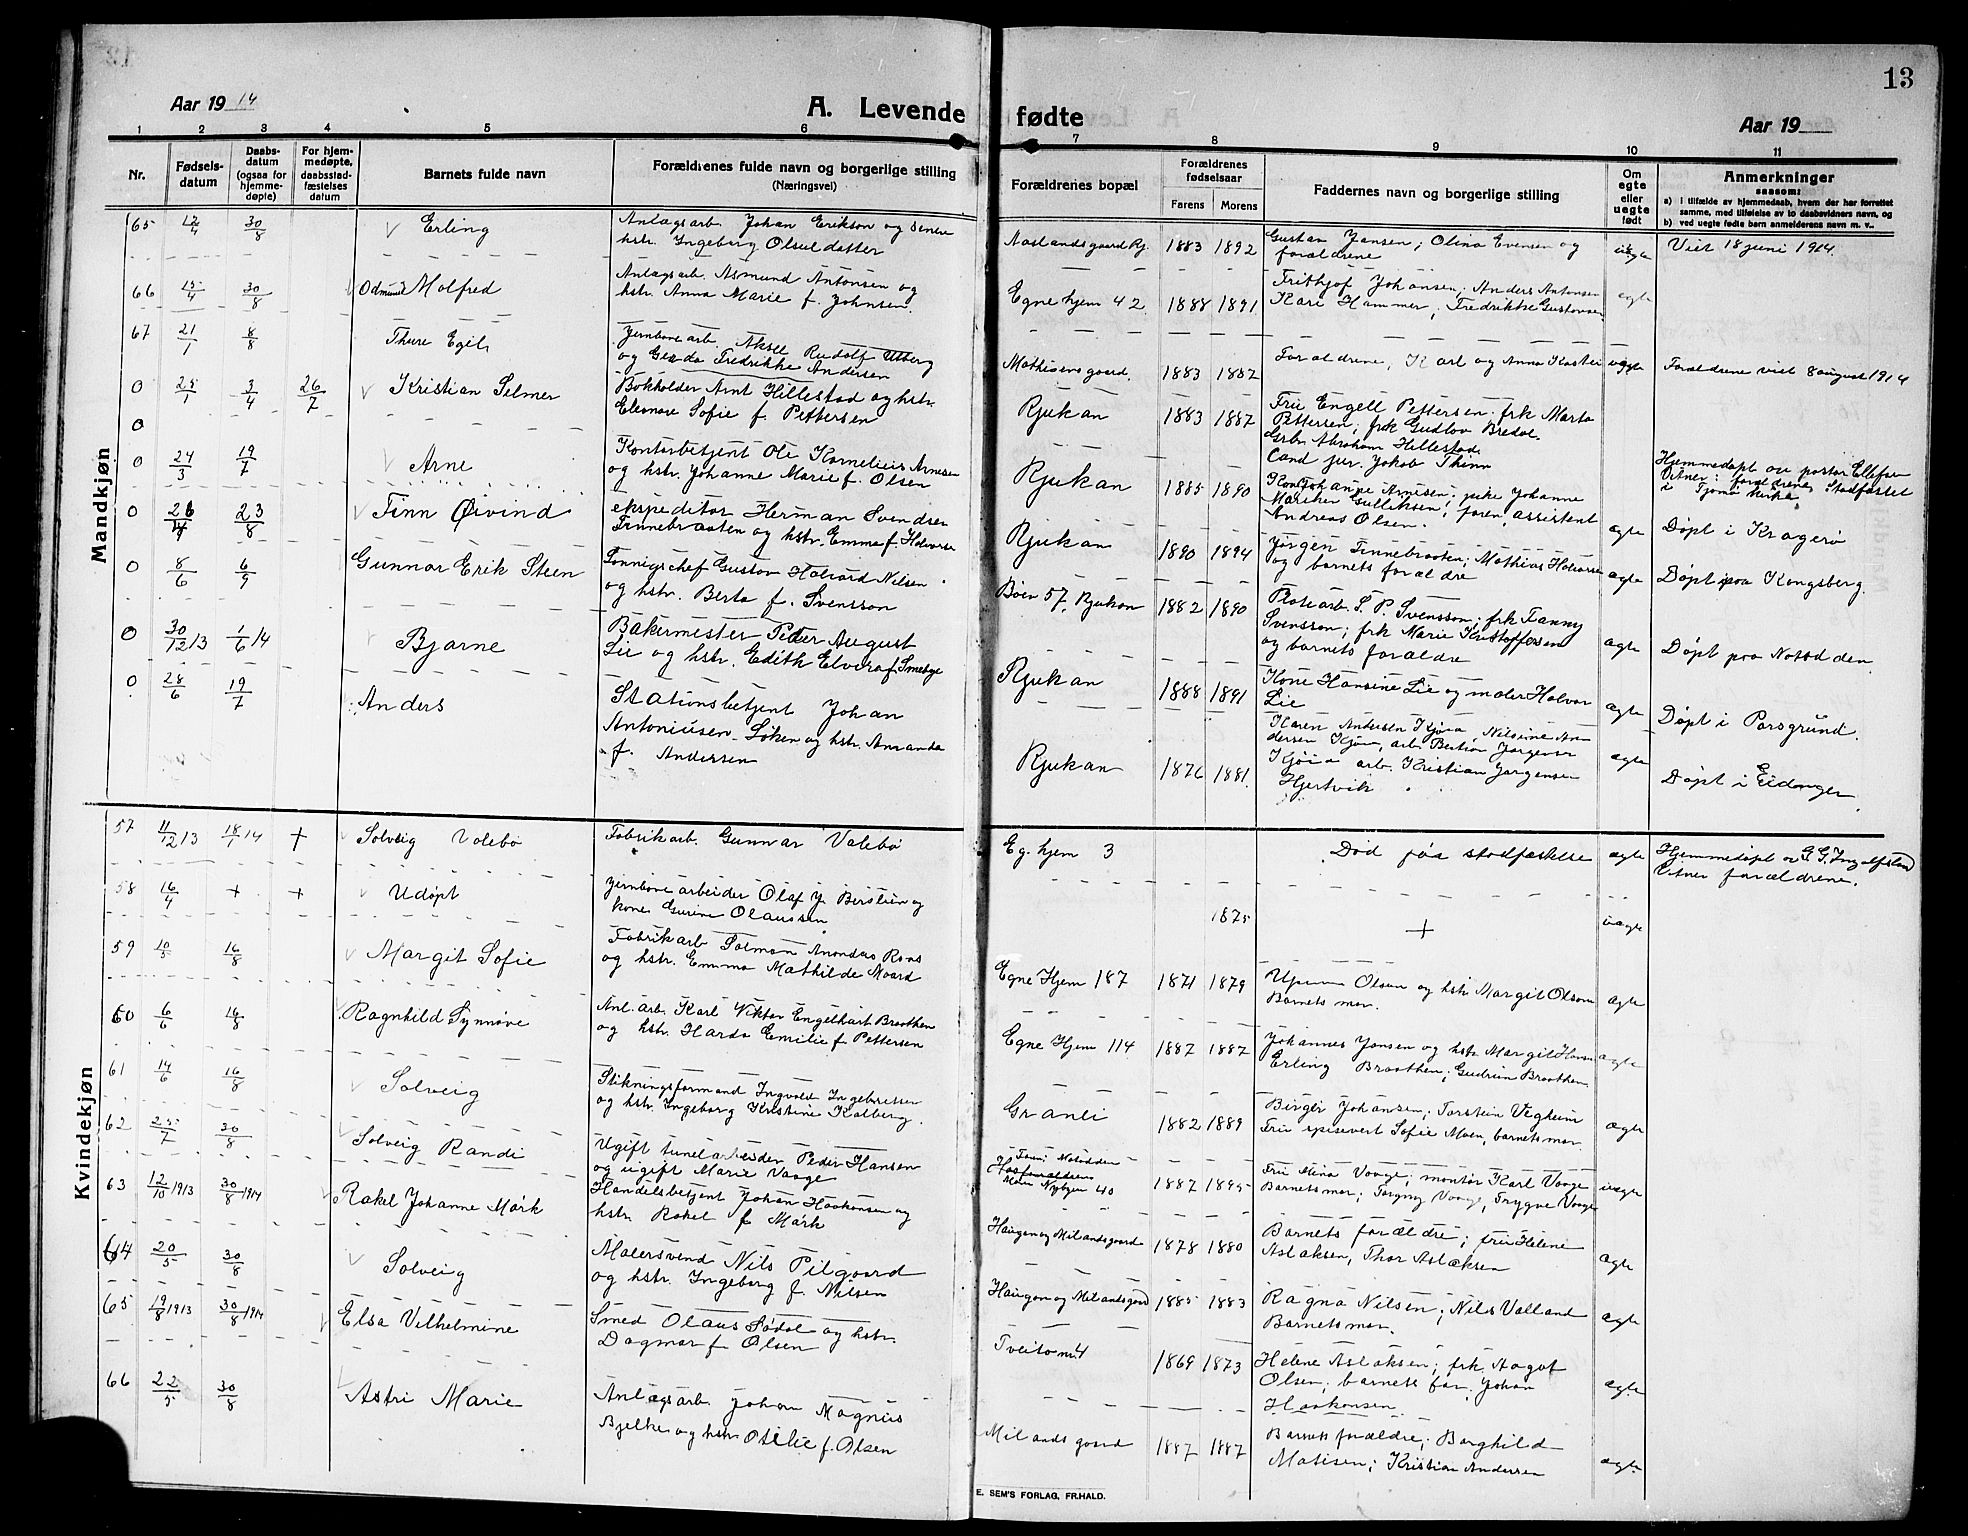 13
Aar 1914
A. Levende fødte
Aar 19
1 2 3 4 5 6 7 8 9 10 11
Nr.
Fødsels-
datum
Daabs-
datum
(ogsaa for
hjemme-
døpte)
For hjem-
medøpte,
daabsstad-
fæstelses
datum
Barnets fulde navn
Forældrenes fulde navn og borgerlige stilling
(Næringsvei)
Forældrenes bopæl
Forældrenes
fødselsaar
Farens Morens
Faddernes navn og borgerlige stilling
Om
egte
eller
uegte
født
Anmerkninger
saasom:
a) i tilfælde av hjemmedaab, hvem der har forrettet
samme, med tilføielse av to daabsvidners navn, og
b) ved uegte fødte børn anmelderens navn m. v..
Mandkjøn
65 12/4 30/8 Erling
Anlægsarb. Johan Erikson og senere
hstr. Ingeborg Olsdatter
1883 1892
Gustav Jansen; Olina Evensen og
forældrene
Viet 18 juni 1914.
66 15/4 30/8 Odmund Malfred
Anlægsarb. Asmund Antonsen og
hstr. Anna Marie f. Johnsen.
Egne hjem 42. 1888 1891
Frithjof Johansen; Anders Antonsen
Kari Hammer; Fredrikke Gustavsen
ægte
67 21/1 8/8 Thure Egil
Jernbanearb. Aksel Rudolf
og Gerda Fredrikke Andersen
Mathisensgaard. 1883 1882
Forældrene, Karl og Anna
Forældrene viet 8 august 1914
0 25/1 3/4 26/7 Kristian Selmer
Bokholder Arnt Hillestad og hstr.
Eleonore Sofie f. Pettersen
Rjukan 1883 1887
Fru Engell Pettersen. frk Marta
Pettersen; frk Gudlov Bredal.
Grb. Abraham Hillestad
Cand jur. Jakob Thinn
0
0 24/3 19/7 Arne
Kontorbetjent Ole Kornelius Arnesen
og hstr. Johanne Marie f. Olsen
Rjukan 1885 1890
Johanne Arnesen; pike Johanne
Gulliksen; assistent
Andreas Olsen.
Hjemmedøpt av pastor Ellefsen
Vitner: forældrene Stadfæstet
i Tjømø kirke
0 26/4 23/8 Finn Øivind
ekspeditør Herman Svendsen
Finnebraaten og hstr. Emma f. Halvorsen
Rjukan 1890 1894
Jørgen Finnebraaten; Mathias Halvorsen
og barnets forældre
ægte Døpt i Kragerø
0 8/6 6/9 Gunnar Erik Steen
Gustav Halvard Nilsen
og hstr. Berta f. Svensson
Bøen 57, Rjukan 1882 1890
S. P. Svensson; frk Fanny
Svensson; frk Marie Kristoffersen
og barnets forældre
ægte Døpt paa Kongsberg.
0 30/12 13 1/6 14 Bjarne
Bakermester Peter August
Lie og hstr. Edith Elvera f.
Rjukan 1888 1891
Kone Hansine Lie og maler Halvor
Lie
ægte Døpt paa Notodden
0 28/6 19/7 Anders
Stationsbetjent Johan
Antoniusen og hstr. Amanda
f. Andersen
Rjukan 1876 1881.
Karen Andersen Nilsine An-
dersen arb. Bertin Jørgensen
arb. Kristian Jørgensen
Hjertvik
ægte Døpt i Porsgrund.
ægte Døpt i Eidanger.
Kvindekjøn
57 11/12 13 18/1 14 + Solveig Valebø
Fabrikarb. Gunnar Valebø
Eg. hjem 3
Død før stadfæstelse ægte
Hjemmedøpt av G. G. Ingolfsland
Vitner forældrene.
58 16/4 + + Udøpt
Jernbanearbeider Olaf J. og
kone Gurine Olaussen
1875 + uægte
59 10/5 16/8 Margit Sofie
Fabrikarb Salmon
og hstr. Emma Mathilde
Egne Hjem 187 1871 1879
Olsen og hstr Margit Olsen
Barnets mor.
ægte
60 6/6 16/8 Ragnhild Synnøve
Anl. arb. Karl Viktor Engelhart Braathen
og hstr. Harda Emilie f. Pettersen
Egne Hjem 114 1887 1887
Johannes Jansen og hstr Margit Hansen
Erling Braathen; Gudrun Braathen
ægte
61 14/6 16/8 Solveig
Stikningsformand Ingvald Ingebretsen
og hstr. Ingeborg Kristine Kolberg.
Granli 1882 1889
Birger Johansen; Torstein Vegheim
Fru spisevert Sofie Moen, barnets mor
ægte
62 25/7 30/8 Solveig Randi
Ugift tunelarbeider Peder Hansen
og ugift Marie Vaage
1887 1895
Fru Mina Vaage; montør Karl Vaage
Barnets mor; Torgny Vaage, Trygve Vaage
uægte
63 12/10 1913 30/8 1914 Rakel Johanne Mørk
Handelsbetjent Johan Haakonsen og
hstr. Rakel f. Mørk
Haugen og Milandsgaard 1878 1880
Barnets forældre; fru Helene
Aslaksen, Thor Aslaksen
ægte
64 20/5 30/8 Solveig
Malersvend Nils Pilgaard
og hstr. Ingeborg f. Nilsen
Haugen og Milandsgaard 1885 1883
Ragna Nilsen; Nils Valland
Barnets mor.
ægte
65 19/8 1913 30/8 1914 Elsa Vilhelmine
Smed Olaus Sødal og hstr.
Dagmar f. Olsen
Tveito nr 4 1869 1873
Helene Aslaksen; frk. Aagot
Olsen; barnets far; Johan
Haakonsen.
ægte
66 22/5 30/8 Astri Marie
Anlægsarb. Johan Magnus
Bjelke og hstr Otilie f. Olsen
Milandsgaard 1887 1887
Barnets forældre; Borghild
Matisen; Kristian Andersen
ægte
E. SEM'S FORLAG, FR.HALD.